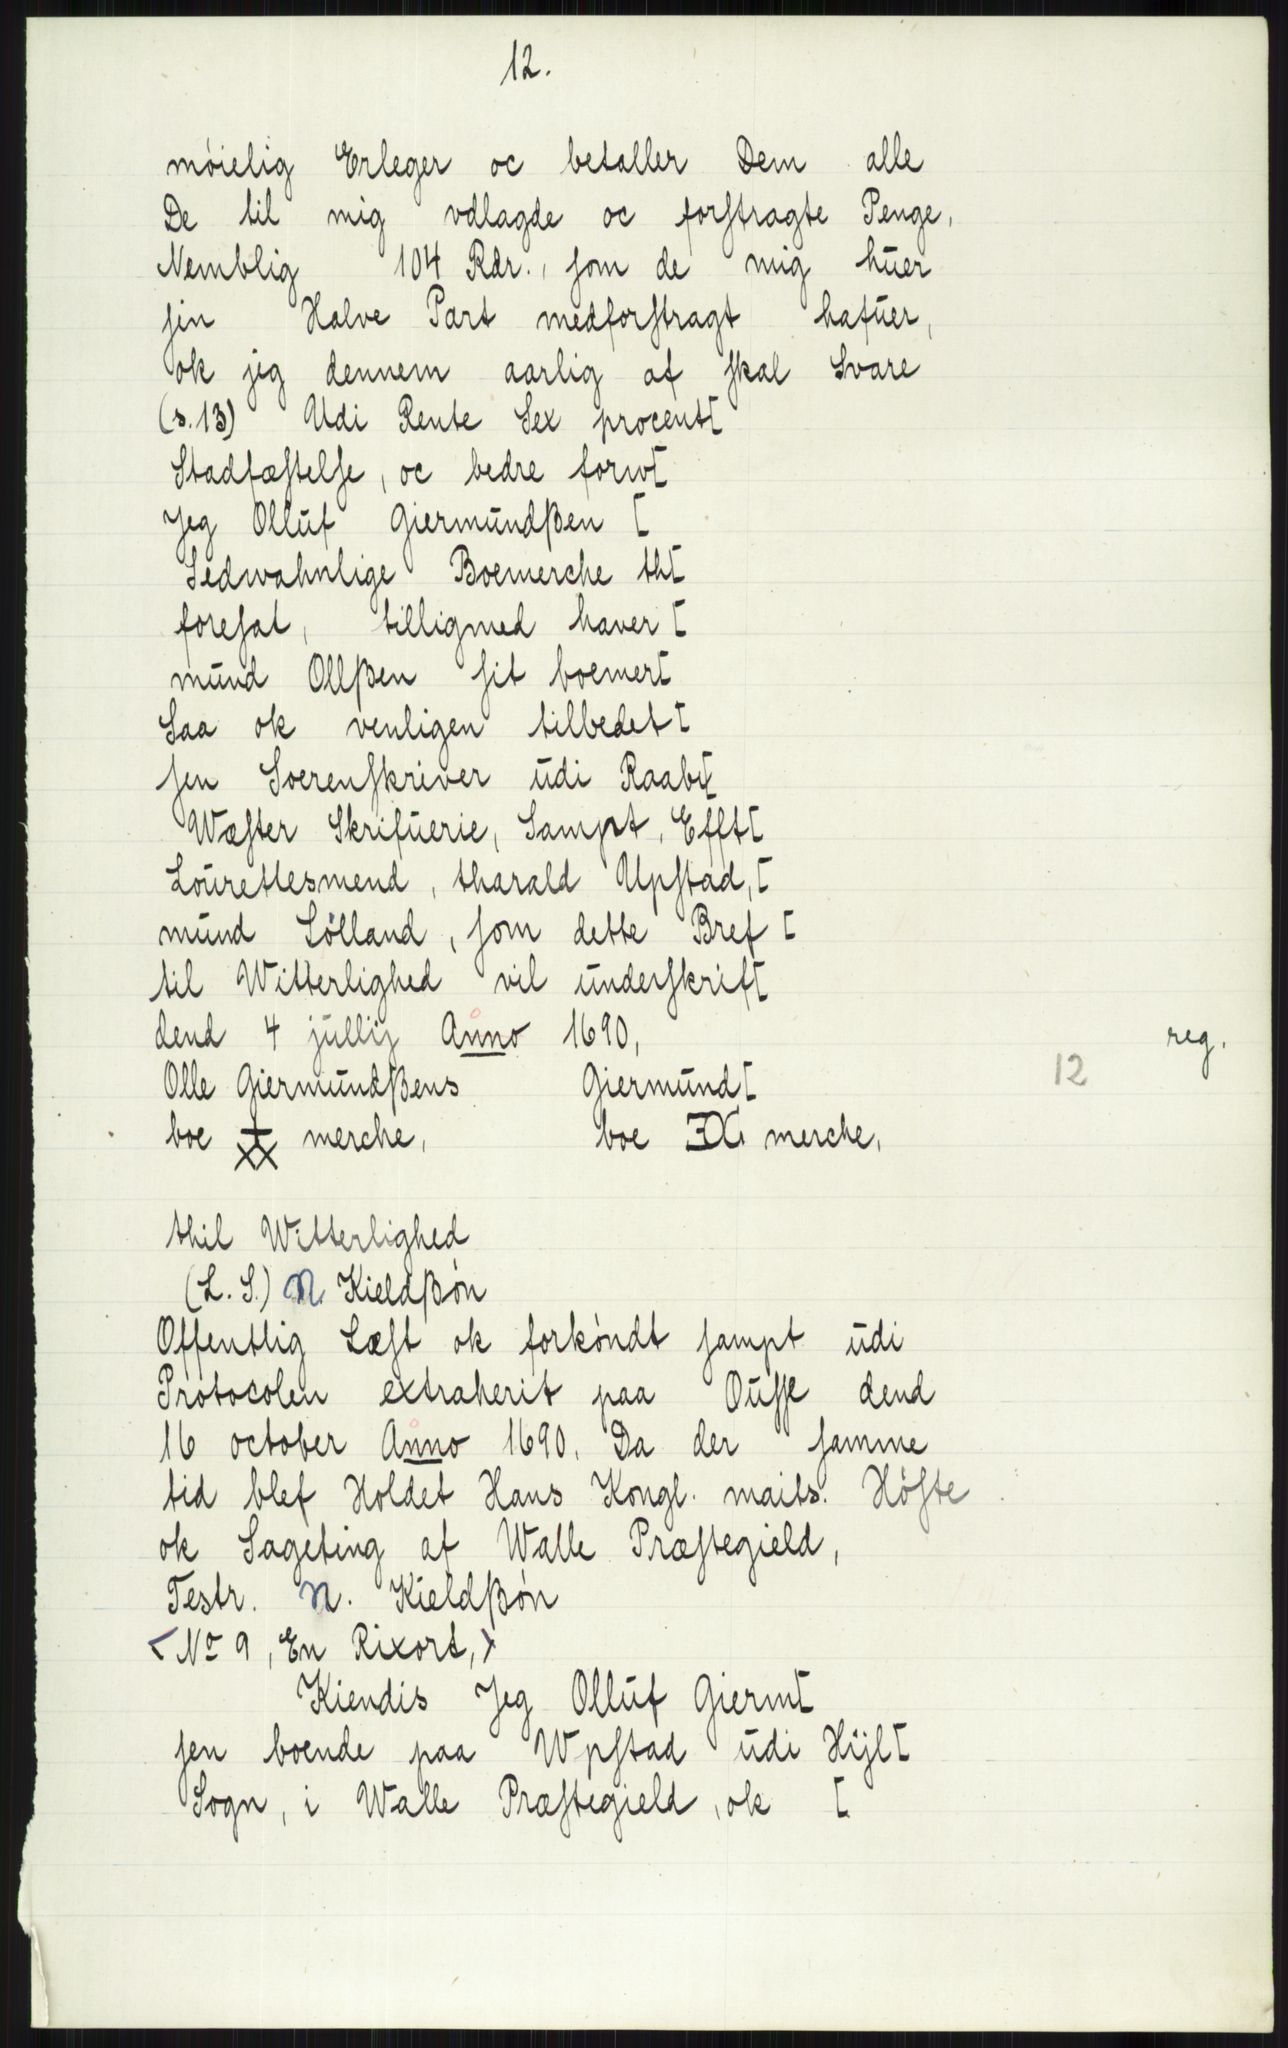 12.
móielig Erleger oc betaller Dem alle
De til mig vdlagde oc forstragte Penge,
Nemblig 104 Rdr., som de mig hŭer
sin Halve Part medforstragt hafŭer,
ok jeg dennem aarlig af skal Svare
(s. 13) Udi Rente Sex procent[
Stadfæstelse, oc bedre forw[
Jeg Ollŭf Giermŭndßen [
Sedwahnlige Boemerche th[
foresat, tilligmed haver [
mŭnd Ollßen sit boemer[
Saa ok venligen tilbedet [
sen Soerenskriver ŭdi Raab[
Wæster Skrifŭerie, Sampt, Efft[
Loŭrettesmend, tharald Upstad, [
mŭnd Sölland, som dette Bref [
til Witterlighed vil ŭnderskrif[
dend 4 jŭllij Anno 1690,
reg.
12
Olle Giermŭndßens Giermŭnd[
boe merche, boe merche,
thil Witterlighed
(L. S.) N. Kieldßón
Offentlig Læst ok forkóndt sampt ŭdi
Protocolen extraherit paa Oŭsse dend
16 october Anno 1690. Da der samme
tid blef Holdet Hans Kongl. maits. Höste
ok Sageting af Walle Præstegield,
Testr. N. Kieldßón
<No 9, En Rixort,>
Kiendis Jeg Ollŭf Gierm[
sen boende paa Wpstad ŭdi Hÿl[
Sogn, i Walle Præstegield, ok [